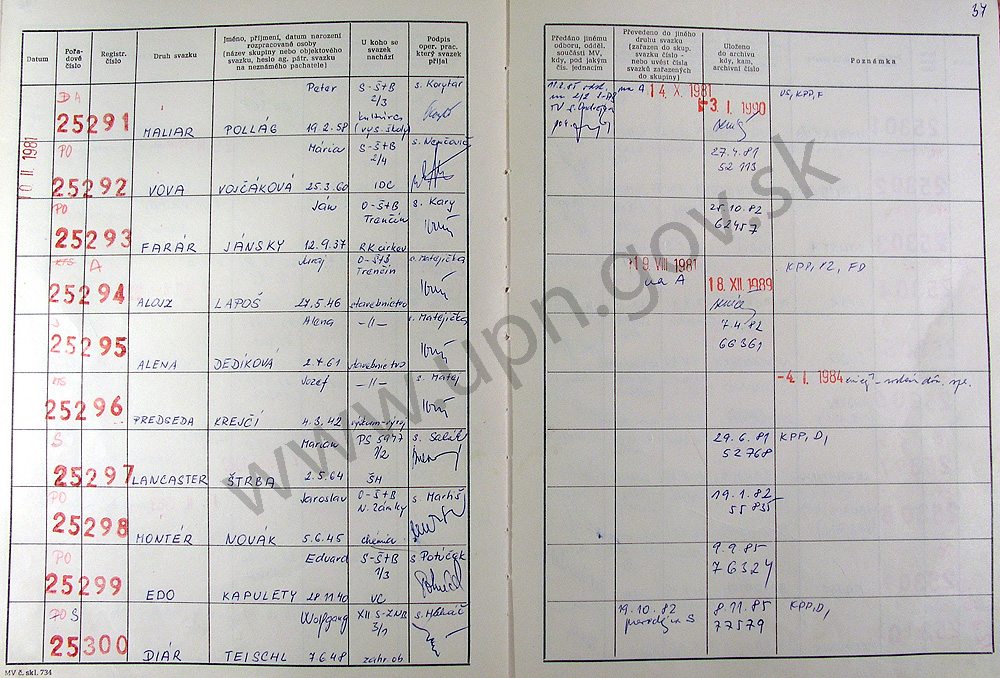 34
Datum
Pořa-
dové
číslo
Registr.
číslo
Druh svazku
Jméno, příjmení, datum narození
rozpracované osoby
(název skupiny nebo objektového
svazku, heslo ag. pátr. svazku
na neznámého pachatele)
U koho se
svazek
nachází
Podpis
oper. prac.
který svazek
přijal
Předáno jinému
odboru, odděl.
součásti MV,
kdy, pod jakým
čís. jednacím
Převedeno do jiného
druhu svazku
(zařazen do skup.
svazku číslo -
nebo uvést čísla
svazků zařazených
do skupiny)
Uloženo
do archivu
kdy, kam,
archivní číslo
Poznámka
10 II. 1981
DA
25291
MALIAR
Peter
POLLÁG 19.2.58
S-ŠtB
2/3
kultúra
(vys. školy
s. Korytár
na A 14. X. 1981
-3 I. 1990
VŠ, KPP, F
PO
25292
VOVA
Mária
VOJČÁKOVÁ 25.3.60
S-ŠtB
2/4
IDC
27.4.81
52113
PO
25293
FARÁR
Ján
JÁNSKY 12.9.37
O-ŠtB
Trenčín
RK cirkev
s. Kary
25.10.82
62457
KTS A
25294
ALOJZ
Juraj
LAPOŠ 27.5.46
O-ŠtB
Trenčín
stavebníctvo
s. Matejička
19. VIII 1981
na A
18. XII. 1989
KPP, YZ, FD
25295
ALENA
Alena
DEDÍKOVÁ 2 7 61
-II-
stavebníctvo
s. Matejička
7.4.82
60361
25296
PREDSEDA
Jozef
KREJČÍ 4.3.42
-II-
s. Matej
-4. I. 1984
S
25297
LANCASTER
Marian
ŠTRBA 2.5.64
PS 5977
7/2
ŠH
s. Salik
29.6.81
52768
KPP, D,
PO
25298
MONTÉR
Jaroslav
NOVÁK 5.6.45
O-ŠtB
N. Zámky
chemia
19.1.82
55835
PO
25299
EDO
Eduard
KAPULETY 28 11 40
S-ŠtB
1/3
VC
s Potúček
9.9.85
76324
PO S
25300
DIÁR
Wolfgang
TEISCHL 7 6 48
XII S-ZNB
3/1
zahr. ob
19.10.82
8.11.85
77579
KPP, D,
MV č. skl. 734
www.upn.gov.sk